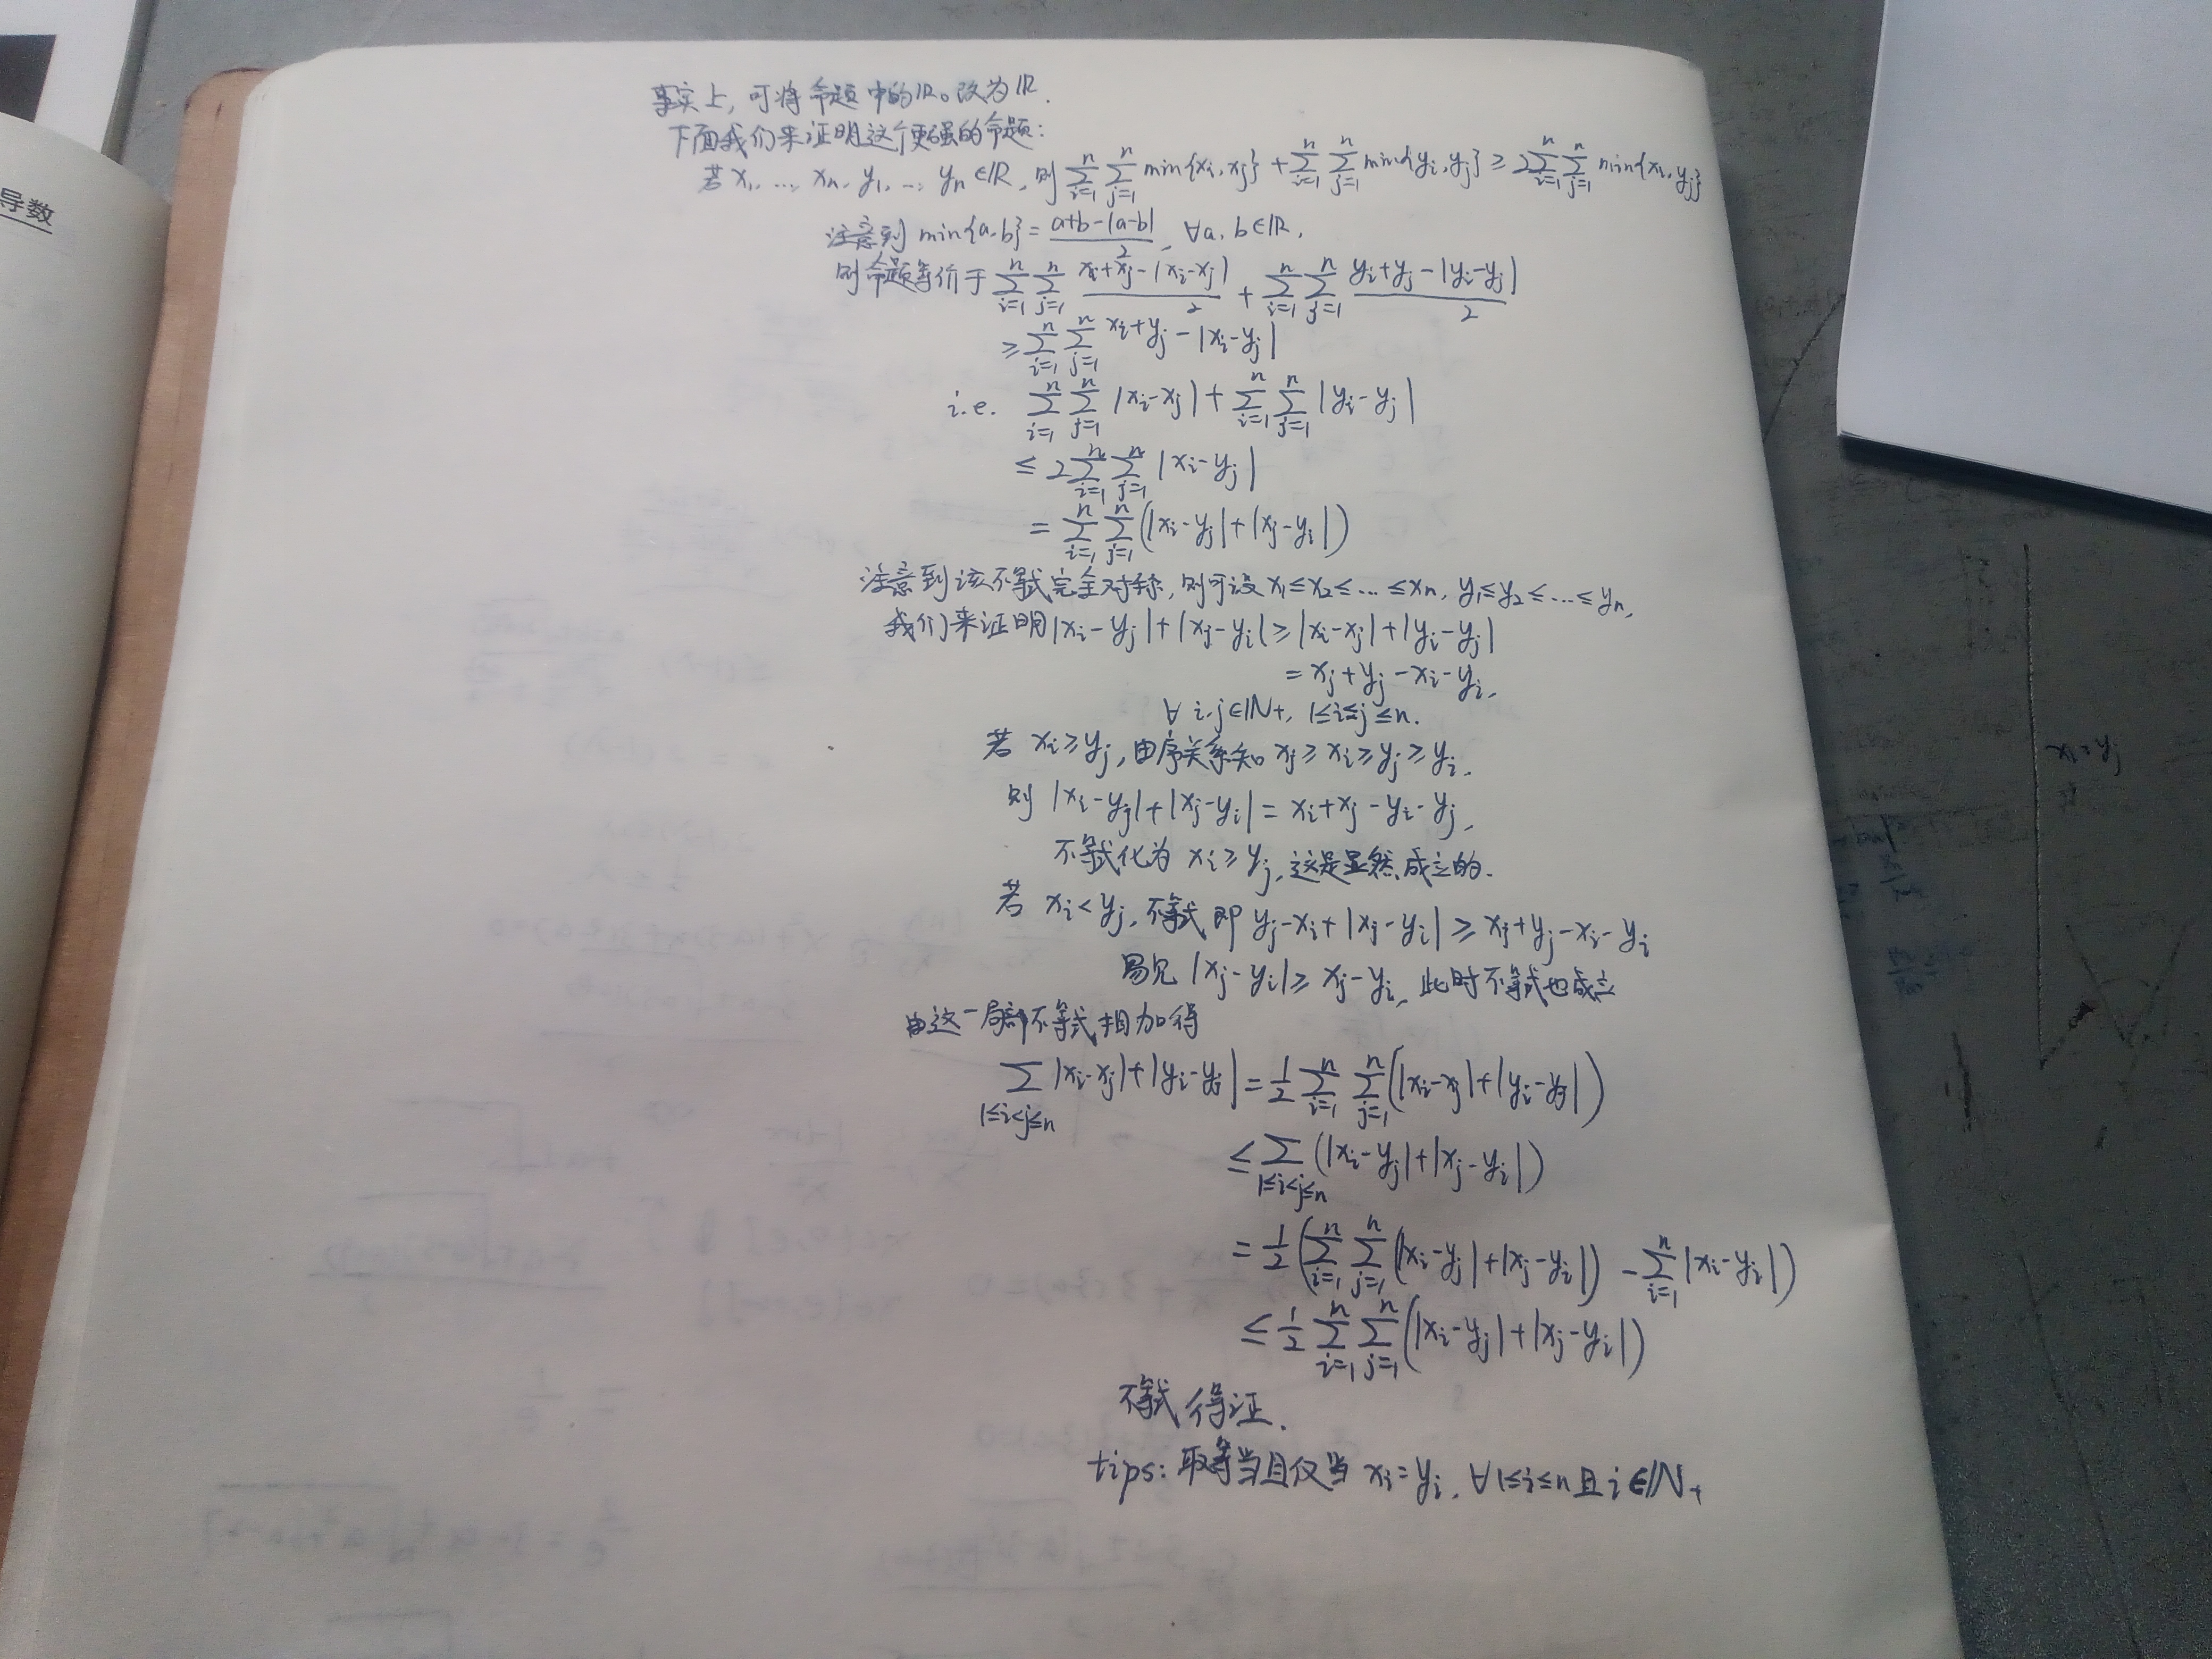 导数
事实上，可将命题中的ℝ₀改为ℝ.
下面我们来证明这个更强的命题：
若 x₁, …, xₙ, y₁, …, yₙ∈ℝ, 则 ∑_{i=1}^{n} ∑_{j=1}^{n} min{xᵢ, xⱼ} + ∑_{i=1}^{n} ∑_{j=1}^{n} min{yᵢ, yⱼ} ≥ 2∑_{i=1}^{n} ∑_{j=1}^{n} min{xᵢ, yⱼ}
注意到 min{a, b} = (a+b-|a-b|)/2, ∀a, b∈ℝ,
则命题等价于 ∑_{i=1}^{n} ∑_{j=1}^{n} (xᵢ+xⱼ-|xᵢ-xⱼ|)/2 + ∑_{i=1}^{n} ∑_{j=1}^{n} (yᵢ+yⱼ-|yᵢ-yⱼ|)/2
≥ ∑_{i=1}^{n} ∑_{j=1}^{n} xᵢ+yⱼ-|xᵢ-yⱼ|
i.e. ∑_{i=1}^{n} ∑_{j=1}^{n} |xᵢ-xⱼ| + ∑_{i=1}^{n} ∑_{j=1}^{n} |yᵢ-yⱼ|
≤ 2∑_{i=1}^{n} ∑_{j=1}^{n} |xᵢ-yⱼ|
= ∑_{i=1}^{n} ∑_{j=1}^{n} (|xᵢ-yⱼ|+|xⱼ-yᵢ|)
注意到该不等式完全对称, 则可设 x₁≤x₂≤…≤xₙ, y₁≤y₂≤…≤yₙ,
我们来证明|xᵢ-yⱼ|+|xⱼ-yᵢ|≥|xᵢ-xⱼ|+|yᵢ-yⱼ|
= xⱼ+yⱼ-xᵢ-yᵢ,
∀ i, j∈ℕ₊, 1≤i≤j≤n.
若 xᵢ≥yⱼ, 由序关系知 xⱼ≥xᵢ≥yⱼ≥yᵢ,
则 |xᵢ-yⱼ|+|xⱼ-yᵢ| = xᵢ+xⱼ-yᵢ-yⱼ,
不等式化为 xᵢ≥yⱼ, 这是显然成立的.
若 xᵢ<yⱼ, 不等式即 yⱼ-xᵢ+|xⱼ-yᵢ|≥xⱼ+yⱼ-xᵢ-yᵢ
易见 |xⱼ-yᵢ|≥xⱼ-yᵢ, 此时不等式也成立
由这一局部不等式相加得
∑_{1≤i<j≤n} |xᵢ-xⱼ|+|yᵢ-yⱼ| = 1/2 ∑_{i=1}^{n} ∑_{j=1}^{n} (|xᵢ-xⱼ|+|yᵢ-yⱼ|)
≤ ∑_{1≤i<j≤n} (|xᵢ-yⱼ|+|xⱼ-yᵢ|)
= 1/2 (∑_{i=1}^{n} ∑_{j=1}^{n} (|xᵢ-yⱼ|+|xⱼ-yᵢ|) - ∑_{i=1}^{n} |xᵢ-yᵢ|)
≤ 1/2 ∑_{i=1}^{n} ∑_{j=1}^{n} (|xᵢ-yⱼ|+|xⱼ-yᵢ|)
不等式得证.
tips: 取等当且仅当 xᵢ=yᵢ, ∀1≤i≤n且i∈ℕ₊